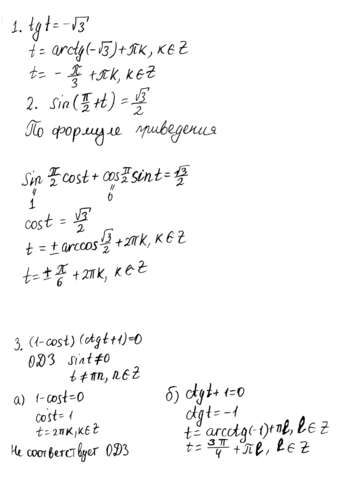 1. tgt = -√3
t = arctg(-√3) + πk, k∈Z
t = -π/3 + πk, k∈Z
2. sin(π/2 + t) = √3/2
По формуле приведения
sin π/2 cost + cos π/2 sint = √3/2
1 0
cost = √3/2
t = ± arccos √3/2 + 2πk, k∈Z
t = ± π/6 + 2πk, k∈Z
3. (1-cost)(ctgt+1)=0
ОДЗ sint≠0
t≠πn, n∈Z
a) 1-cost=0
cost=1
t=2πk, k∈Z
Не соответствует ОДЗ
б) ctgt+1=0
ctgt=-1
t=arcctg(-1)+πl, l∈Z
t=3π/4+πl, l∈Z